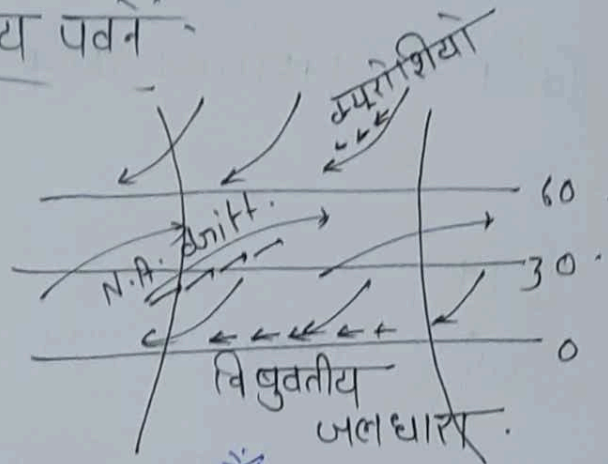 य पवने
क्यूरोशियो
60
N.A. Drift.
30.
0
विषुवतीय
जलधारा.